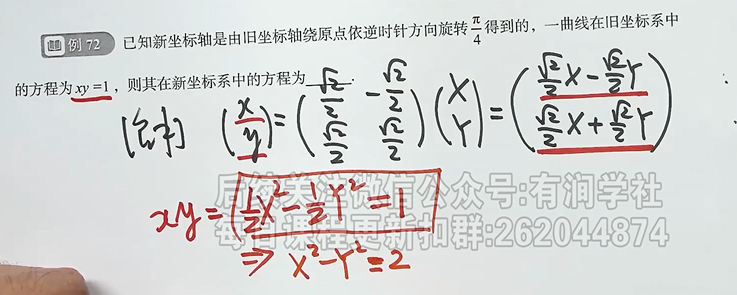 例 72 已知新坐标轴是由旧坐标轴绕原点依逆时针方向旋转 π/4 得到的，一曲线在旧坐标系中
的方程为 xy=1，则其在新坐标系中的方程为______.
(x y) = (√2/2 -√2/2 √2/2 √2/2) (X Y) = (√2/2 X - √2/2 Y √2/2 X + √2/2 Y)
xy = 1/2 X² - 1/2 Y² = 1
⇒ X² - Y² = 2
微信公众号:有润学社
每日课程更新扣群:262044874